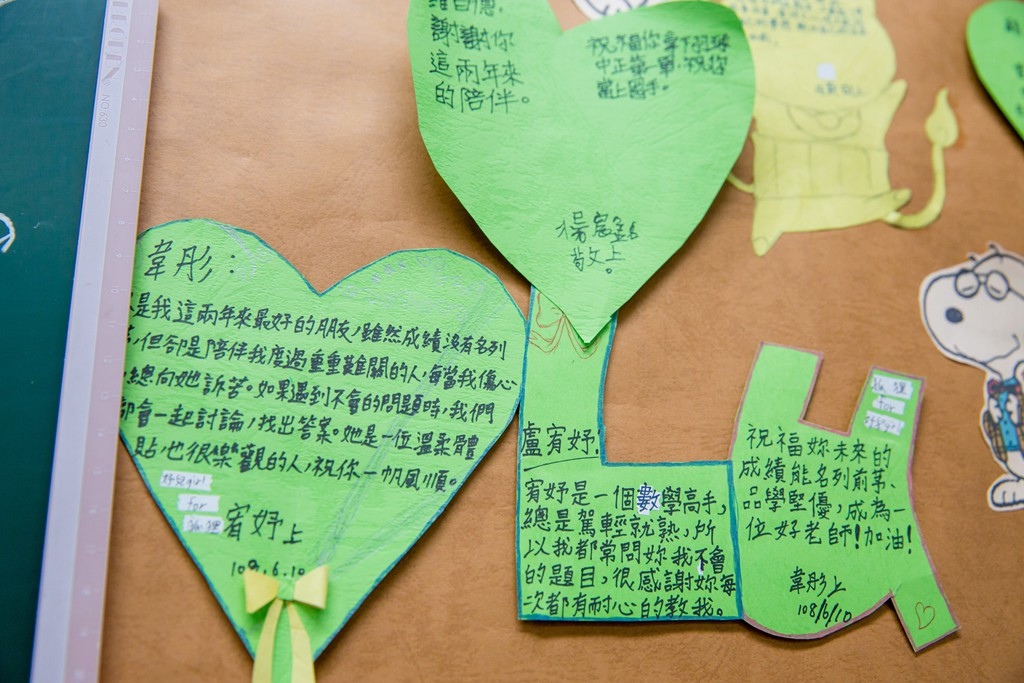 謝謝你
這兩年來
的陪伴。
祝福你拿下羽球
中正第一單,祝你
當上國手。
敬上。
韋彤:
是我這兩年來最好的朋友,雖然成績沒有名列
,但卻是陪伴我度過重重難關的人,每當我傷心
總向她訴苦。如果遇到不會的問題時,我們
都會一起討論,找出答案。她是一位溫柔體
貼,也很樂觀的人,祝你一帆風順。
好兒girl
for
宥妤上
108.6.10
盧宥妤.
宥妤是一個數學高手,
總是駕輕就熟,所
以我都常問妳我不會
的題目,很感謝妳每
次都有耐心的教我。
for
祝福妳未來的
成績能名列前茅、
品學堅優,成為一
位好老師!加油!
韋彤上
108/6/10
NO.630